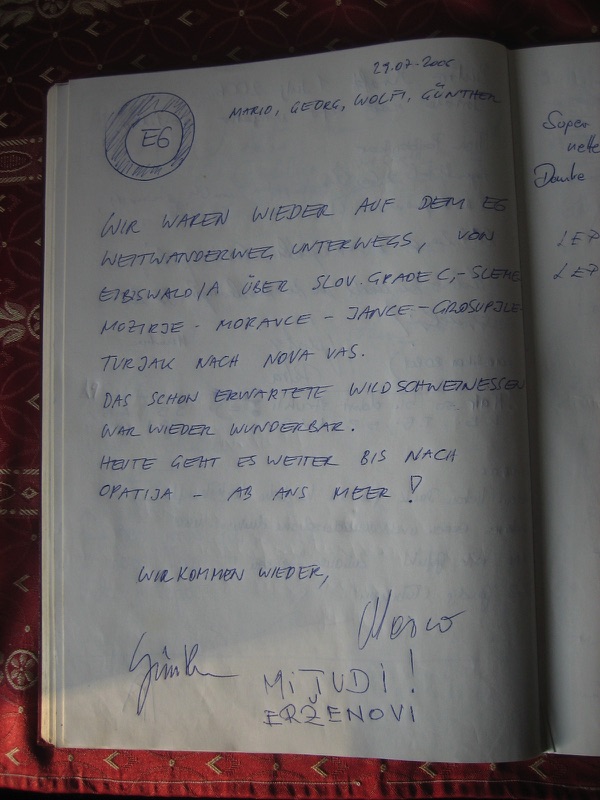 29.07.2005
MARIO, GEORG, WOLFI, GÜNTHER
E6
WIR WAREN WIEDER AUF DEM E6
WEITWANDERWEG UNTERWEGS, VON
EIBISWALD/A ÜBER SLOV. GRADEC,-SLEME
MOZIRJE - MORAVCE - JANCE - GROSUPLJE
TURJAK NACH NOVA VAS.
DAS SCHON ERWARTETE WILDSCHWEINESSEN
WAR WIEDER WUNDERBAR.
HEUTE GEHT ES WEITER BIS NACH
OPATIJA - AB ANS MEER!
WIR KOMMEN WIEDER,
Günther
MI TUDI!
ERŽENOVI
Super
nette
Danke
LEP
LEP